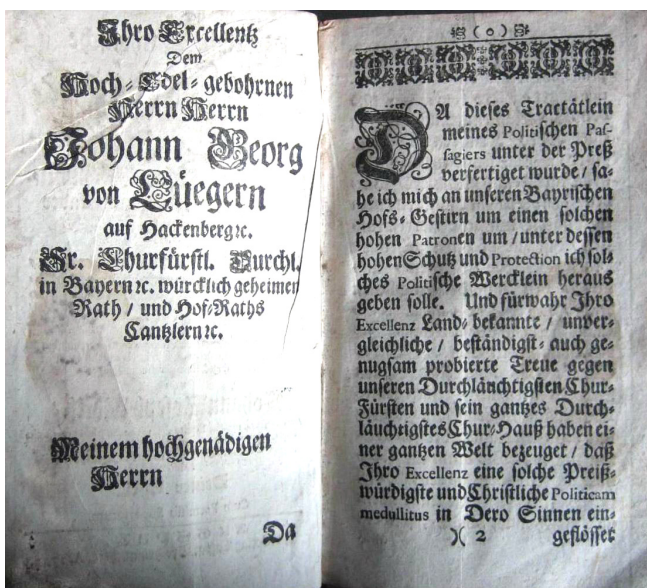 Ihro Excellentz
Dem
Hoch-Edel-gebohrnen
Herrn Herrn
Johann Georg
von Lüegern
auf Hackenberg ꝛc.
Sr. Churfürstl. Durchl.
in Bayern ꝛc. würcklich geheimen
Rath / und Hof-Raths
Cantzlern ꝛc.
Meinem hochgenädigen
Herrn
Da
( o )
DA dieses Tractätlein
meines Politischen Pas-
sagiers unter der Preß
verfertiget wurde / sa-
he ich mich an unseren Bayrischen
Hofs-Gestirn um einen solchen
hohen Patronen um / unter dessen
hohen Schutz und Protection ich sol-
ches Politische Wercklein heraus
geben solle. Und fürwahr Ihro
Excellenz Land-bekannte / unver-
gleichliche / beständigst- auch ge-
nugsam probierte Treue gegen
unseren Durchläuchtigsten Chur-
Fürsten und sein gantzes Durch-
läuchtigstes Chur-Hauß haben ei-
ner gantzen Welt bezeuget / daß
Ihro Excellenz eine solche Preiß-
würdigste und Christliche Politicam
medullitus in Dero Sinnen ein-
)( 2 geflösset